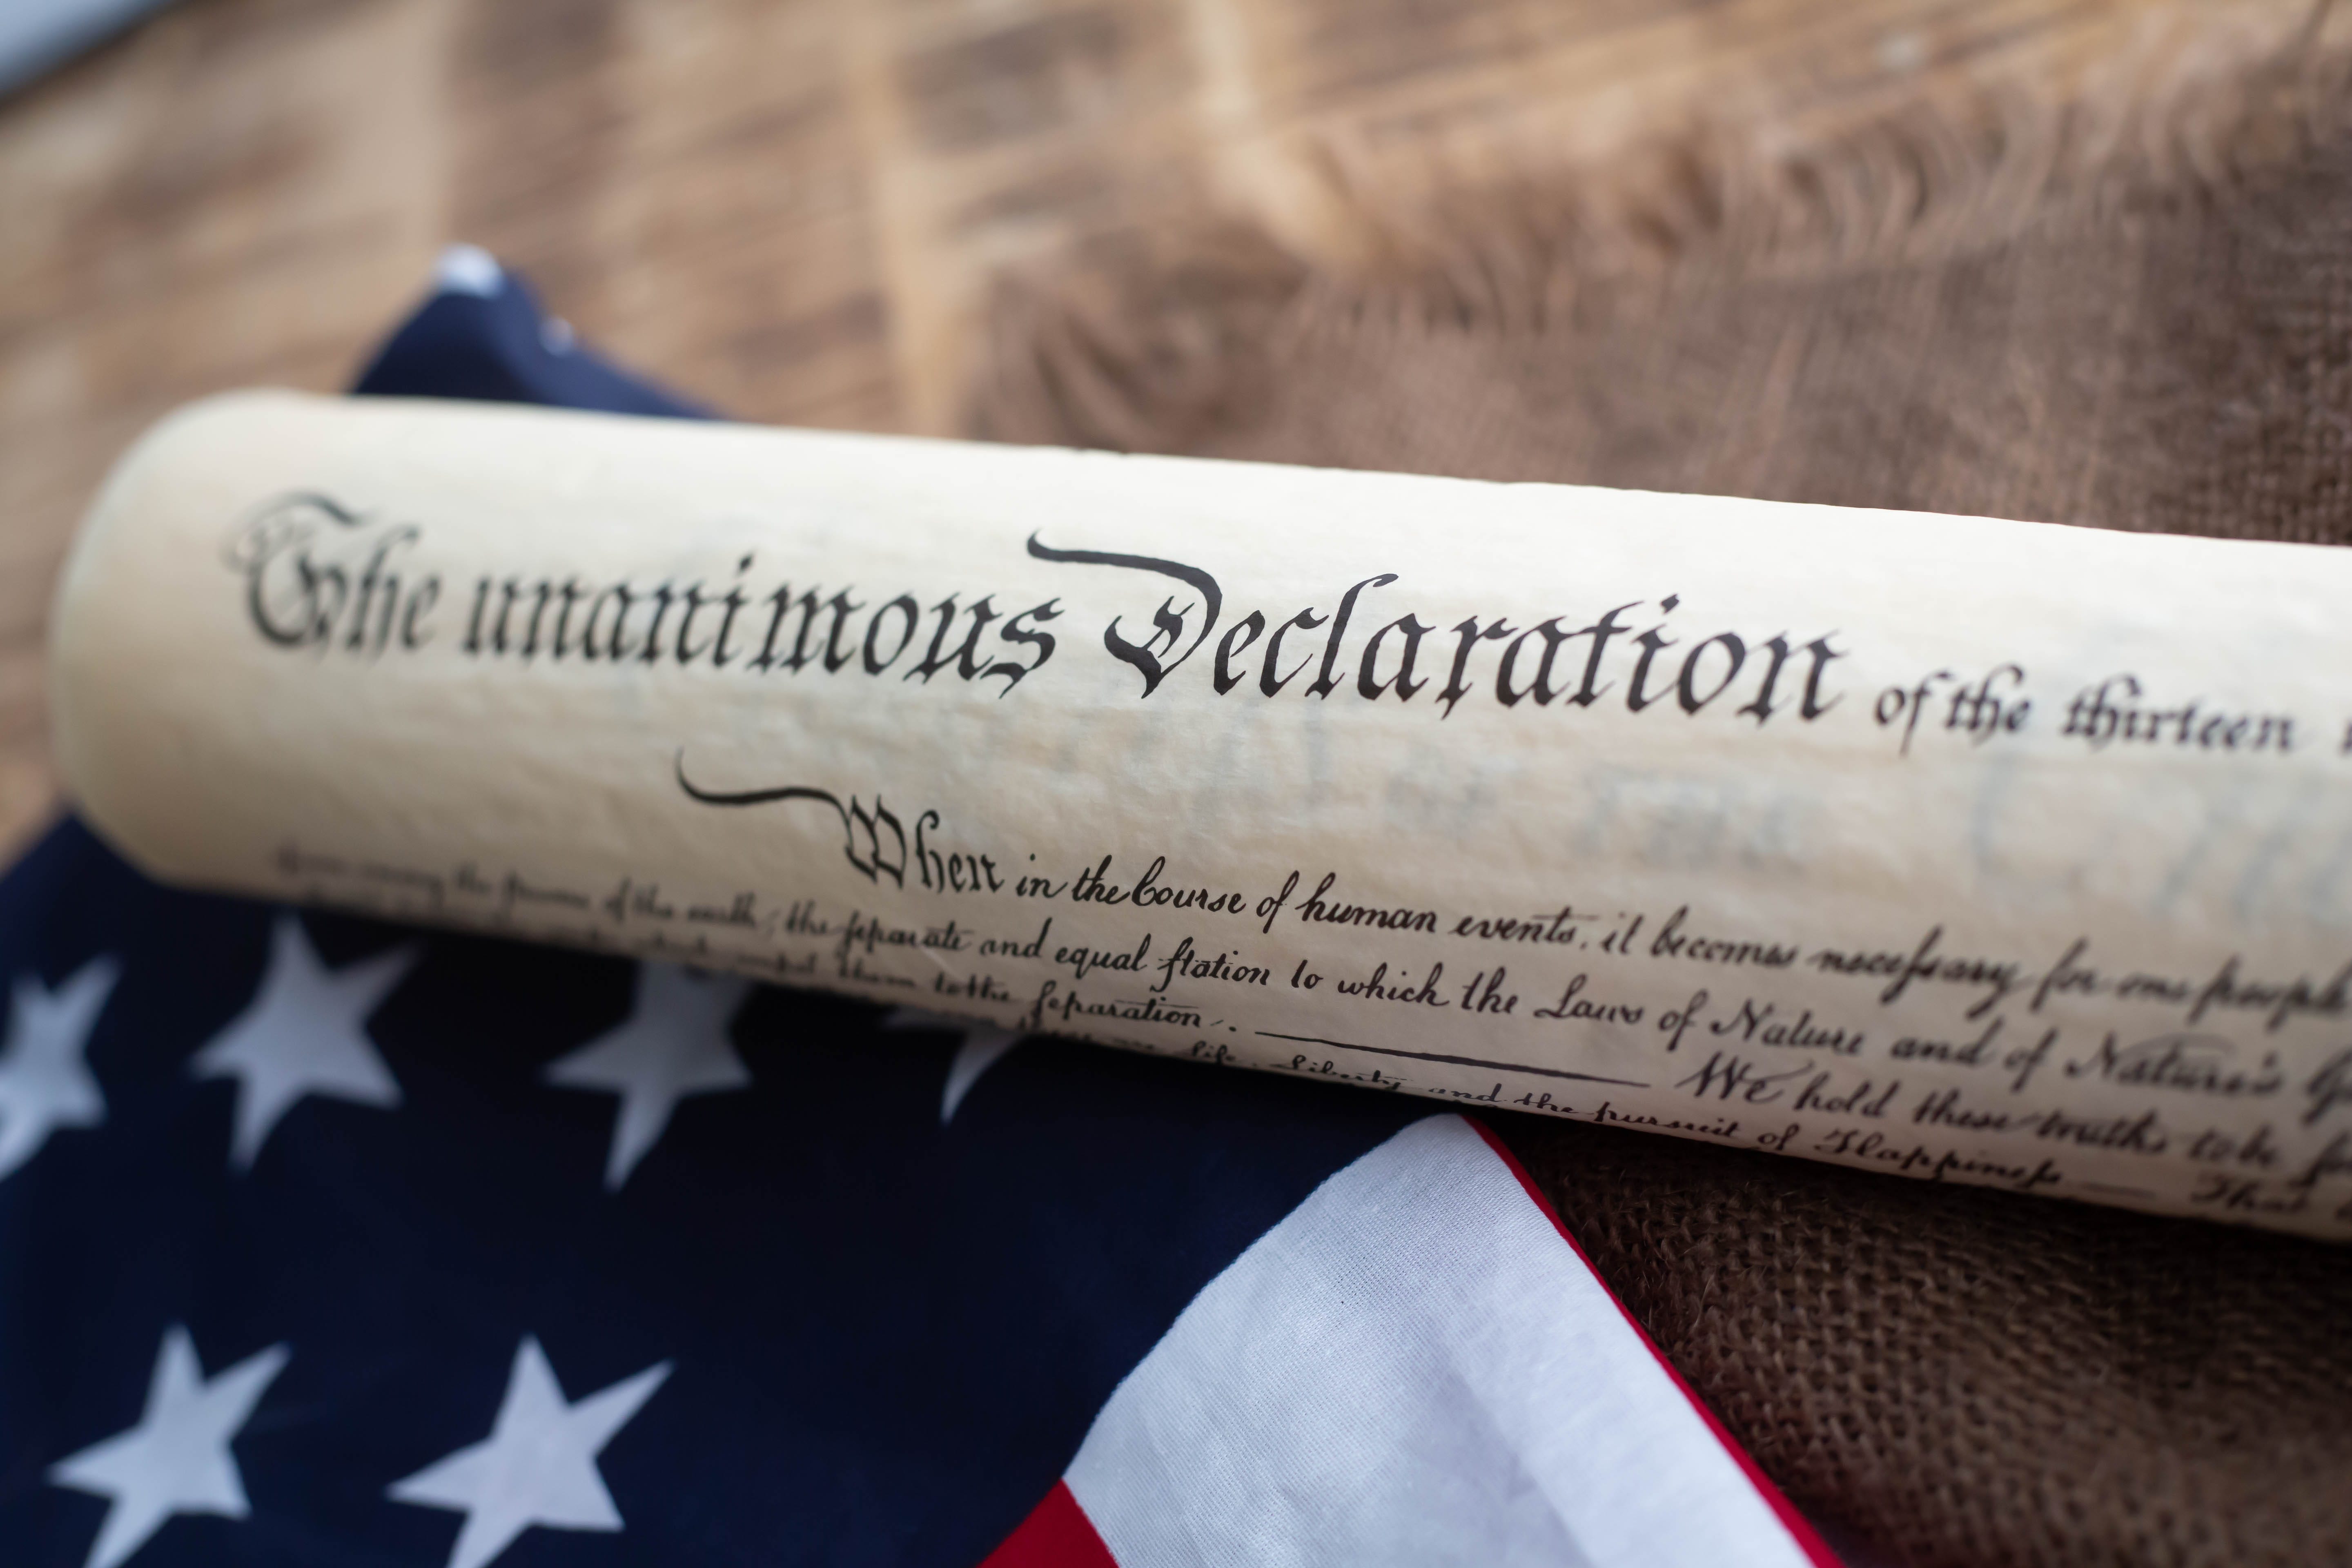 The unanimous Declaration of the thirteen
When in the Course of human events, it becomes necessary for one people
the powers of the earth, the separate and equal station to which the Laws of Nature and of Nature's
them to the separation. We hold these truths to be
are Life, Liberty and the pursuit of Happiness — That